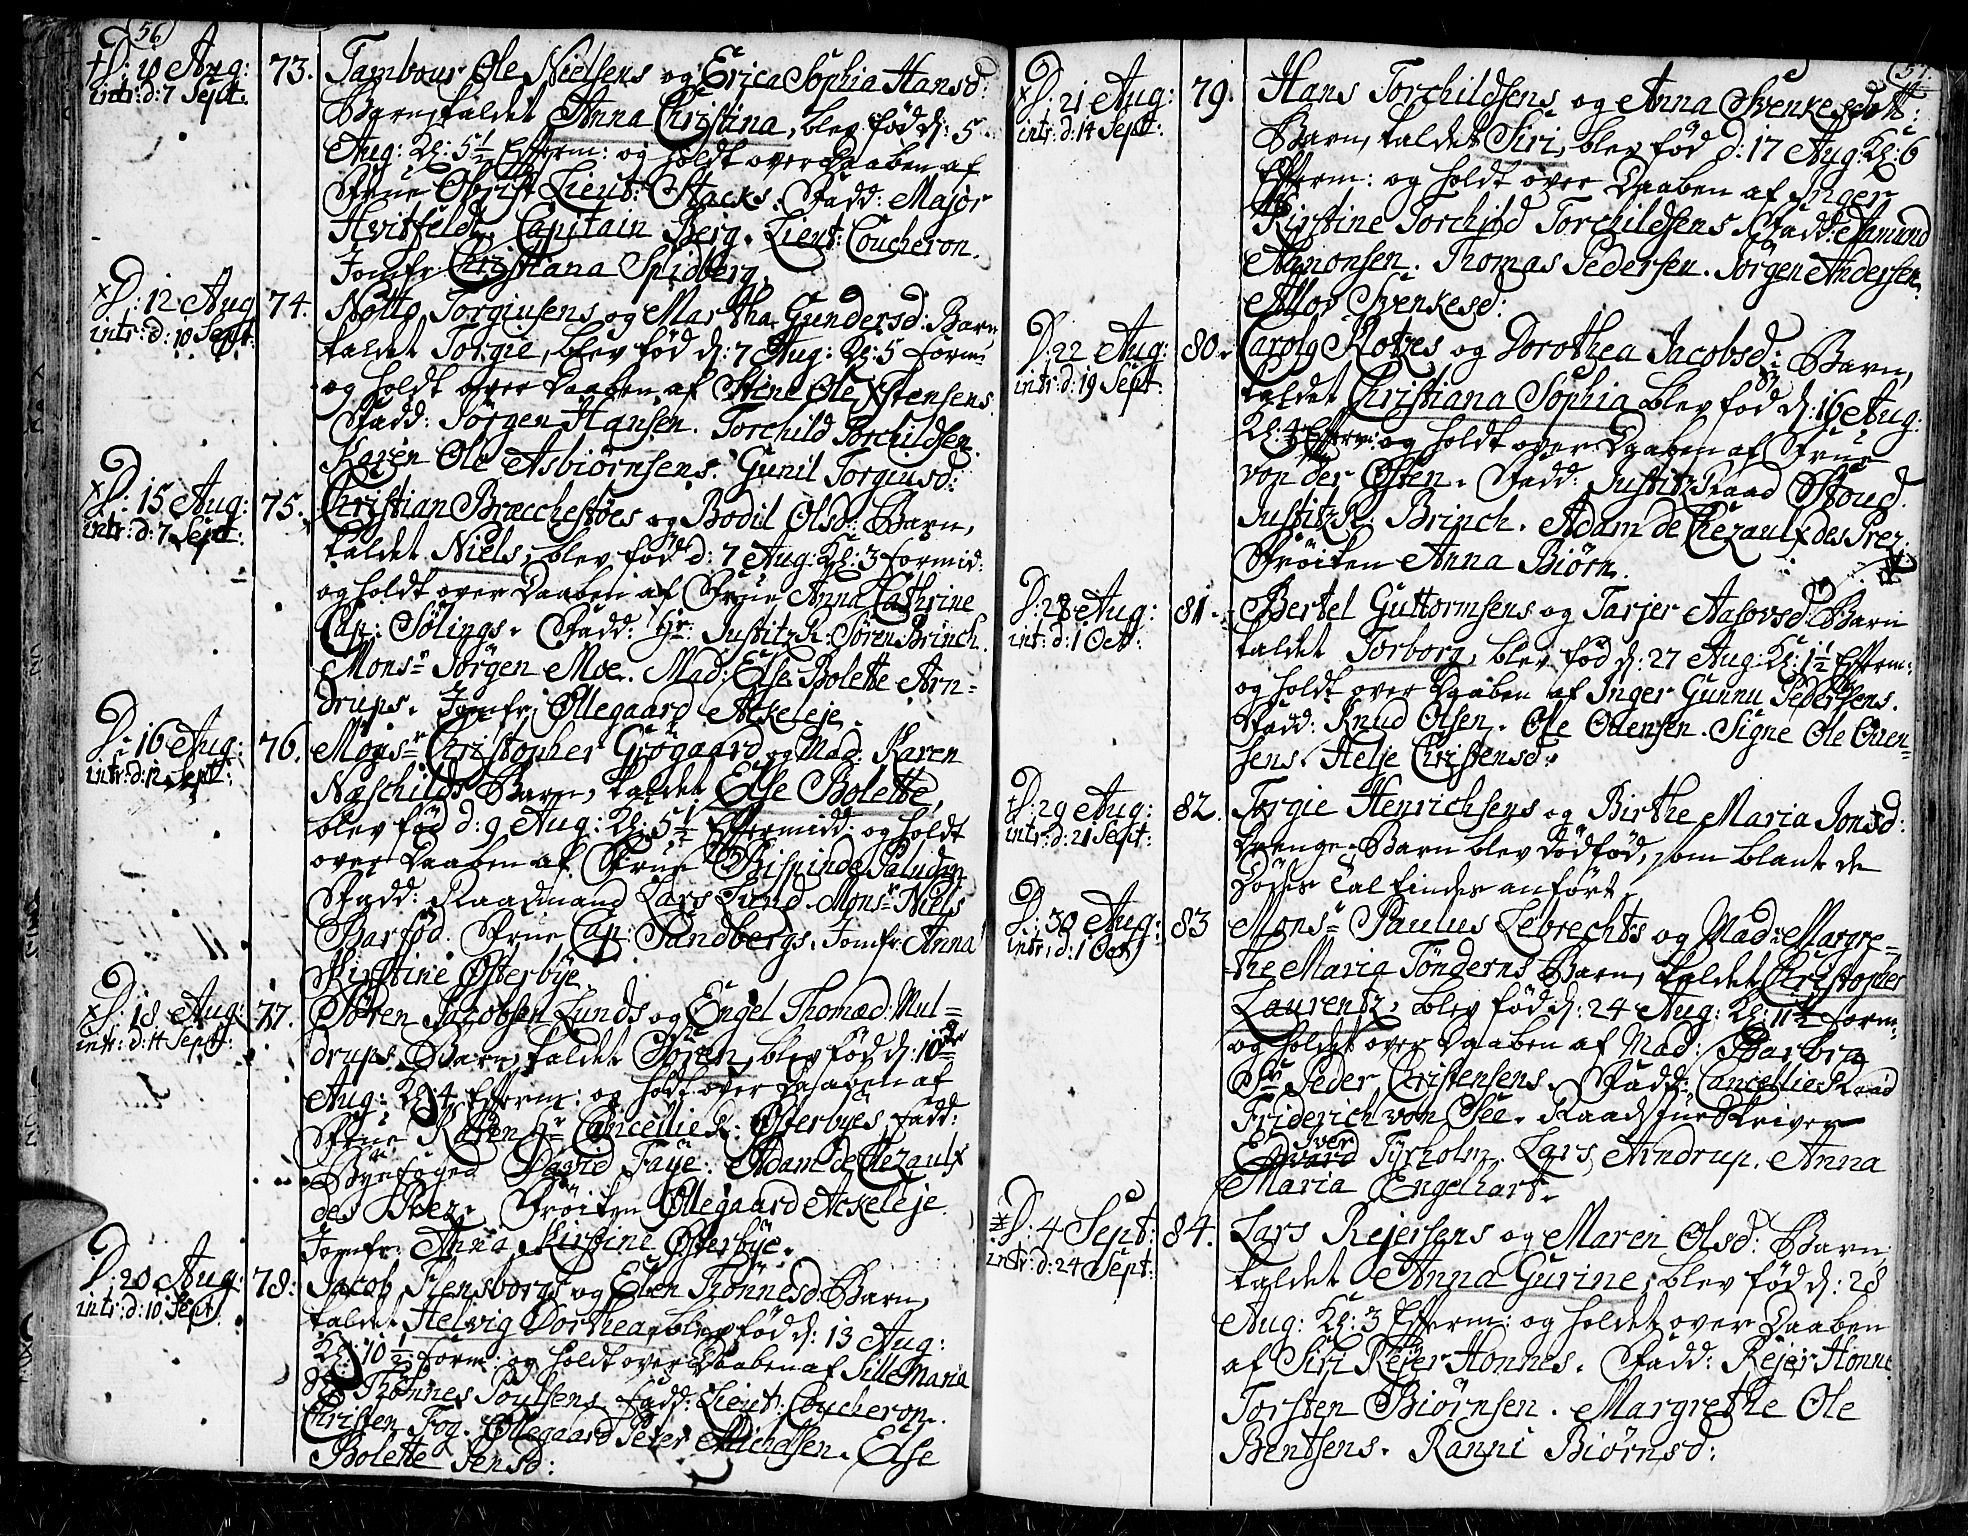 56
† D: 10 Aug:
intr: d: 7 Sept:
73.
Tambour Ole Nielsens og Erica Sophia Hansd:
Barn, kaldet Anna Christina, blev född d: 5
Aug: Kl: 5 1/2 Efterm: og holdt over Daaben af
Frue Obrist Lieut: Stacks. Fadd: Major
Hvitfeldt. Capitain Berg. Lieut: Coucheron.
Jomfr Christiana Spidberg.
x D: 12 Aug
intr: d: 10 Sept:
74.
Notto Torgiusens og Martha Gundersd: Barn
kaldet Torgie, blev föd d: 7 Aug: Kl: 5 form:
og holdt over Daaben af Stine Ole Xstensens.
Fadd: Jörgen Hansen. Torchild Torchildsen.
Karen Ole Asbiörnsens. Gunil Torgiusd:
x D: 15 Aug:
intr: d: 7 Sept:
75.
Christian Bræcchestöes og Bodil Olsd: Barn,
kaldet Niels, blev föd d: 7 Aug: Kl: 3 formid:
og holdt over Daaben af Frue Anna Cathrine
Cap: Sölings. Fadd: Hr: JustitzR: Sören Brinch.
Monsr Jörgen Moe. Mad: Else Bolette Arn=
drups. Jomfr: Öllegaard Ackeleje.
D: 16 Aug:
intr: d: 12 Sept:
76.
Monsr Christopher Grögaard og Mad: Karen
Næschilds Barn, kaldet Else Bolette,
blev föd d: 9 Aug: Kl: 5 1/2 Eftermidd: og holdt
over Daaben af Frue Bispinde Paludan
Fadd: Raadmand Lars Lund. Monsr Niels
Barföd. Frue Cap: Sandbergs. Jomfr Anna
Kirstine Österbye.
x D: 18 Aug:
intr: d: 14 Sept:
77.
Sören Jacobsen Lunds og Engel Thomæd: Mul=
drups Barn, kaldet Sören, blev föd d: 10de
Aug: Kl: 4 Efterm: og holdt over Daaben af
Frue Karen Hr CancellieR: Österbyes, Fadd:
Byefoged David Faÿe. Adam de Chezaulx
des Prez. Fröiken Öllegaard Ackeleje.
Jomfr: Anna Kirstine Österbye.
D: 20 Aug:
intr: d: 10 Sept:
78:
Jacob Flensborgs og Elen Thönnesd: Barn,
kaldet Helvig Dorthea, blev föd d: 13 Aug:
Kl: 10 1/2 form: og holdt over Daaben af Sille Maria
Thönnes Poulsens, Fadd: Lieut: Coucheron.
Christen Fog. Öllegaard Peter Michelsen. Else
Bolette Jensd:
57.
x D: 21 Aug:
intr: d: 14 Sept:
79.
Hans Torchildsens og Anna Svenkesdott:
Barn, kaldet Siri, blev föd d: 17 Aug: Kl: 6
Efterm: og holdt over Daaben af Inger
Kirstine Torchild Torchildsens Fadd: Amund
Aanonsen. Thomas Pedersen. Jörgen Andersen.
Allov Svenkesd:
D: 22 Aug:
intr: d: 19 Sept:
80.
Carolg Rotzes og Dorothea Jacobsd: Barn,
kaldet Christiana Sophia blev föd d: 16 Aug:
Kl: 4 Efterm: og holdt over Daaben af Frue
von der Östen. Fadd: JustitzRaad Stoud.
JustitzR: Brinch. Adam de Chezaulx des Prez.
Fröiken Anna Biörn.
D: 28 Aug:
intr: d: 1 Oct:
81.
Bertel Guttormsens og Tarjer Aasovsd: Barn
kaldet Torborg, blev föd d: 27 Aug: Kl: 1 1/2 Efterm:
og holdt over Daaben af Inger Gunnu Pedersens.
Fadd: Knud Olsen. Ole Ouensen. Signe Ole Ouen=
sens. Helje Christensd:
† D: 29 Aug:
intr: d: 21 Sept:
82.
Torgie Henrichsens og Birthe Maria Jonsd:
Drenge-Barn blev dödföd, som blant de
Dödes Tal findes anfört.
D: 30 Aug:
intr: d: 1 Oct
83
Monsr Paulus Lebrechts og Mad: Margre=
the Maria Tönderns Barn, kaldet Christopher
Laurentz, blev föd d: 24 Aug: Kl: 11 1/2 form.
og holdt over Daaben af Mad: Barbra
Sr Peder Christensens. Fadd: CancellieRaad
Friderich von See. Raadstueskriver
Iver
Edvard Tyrholm. Lars Arndrup. Anna
Maria Engelhart.
D: 4 Sept:
intr: d: 24 Sept:
84.
Lars Rejersens og Maren Olsd: Barn,
kaldet Anna Gurine, blev föd d: 28
Aug: Kl: 3 Efterm: og holdet over Daaben
af Siri Rejer Honnes. Fadd: Rejer Honne
Torsten Biörnsen. Margrethe Ole
Bentsens. Ranni Biörnsd: